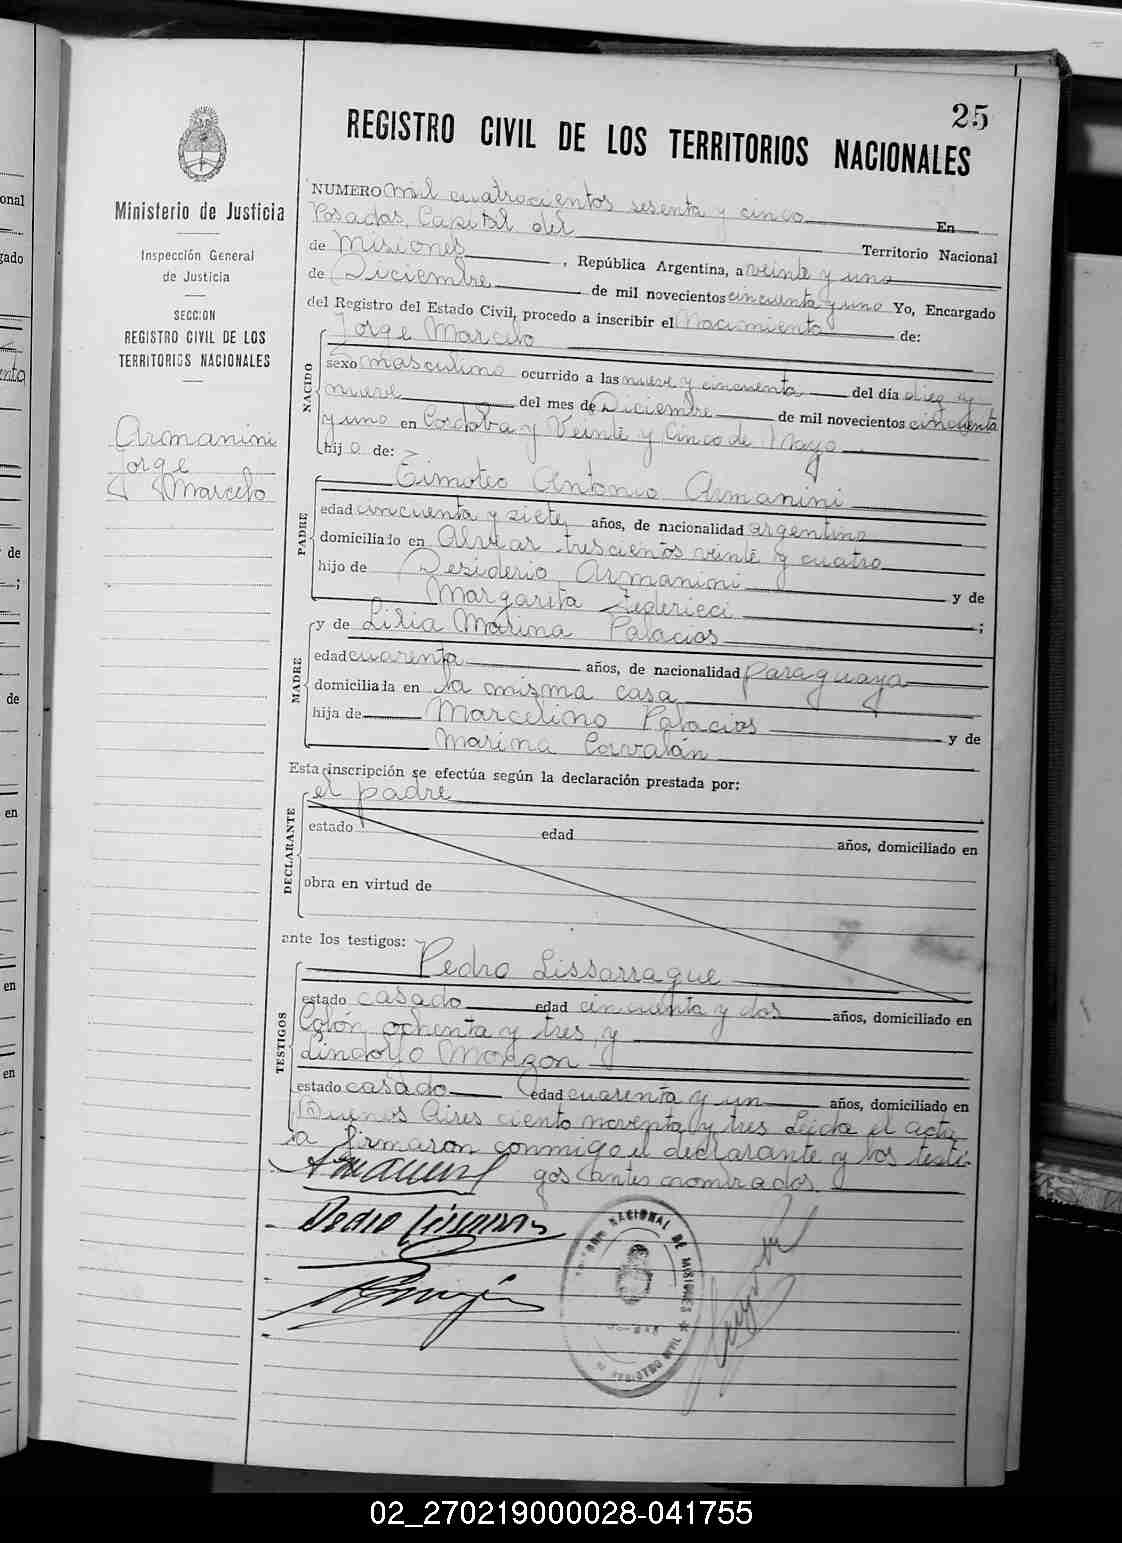 25
REGISTRO CIVIL DE LOS TERRITORIOS NACIONALES
Ministerio de Justicia
Inspección General
de Justicia
SECCION
REGISTRO CIVIL DE LOS
TERRITORIOS NACIONALES
Armanini
Jorge
Marcelo
NUMERO mil cuatrocientos sesenta y cinco En
Posadas, Capital del Territorio Nacional
de Misiones, República Argentina, a veinte y uno
de Diciembre de mil novecientos cincuenta y uno Yo, Encargado
del Registro del Estado Civil, procedo a inscribir el Nacimiento de:
Jorge Marcelo
NACIDO
sexo masculino ocurrido a las nueve y cincuenta del día diez y
nueve del mes de Diciembre de mil novecientos cincuenta
y uno en Cordoba y Veinte y Cinco de Mayo
hijo de:
PADRE
Timoteo Antonio Armanini
edad cincuenta y siete años, de nacionalidad argentino
domiciliado en Alvear trescientos veinte y cuatro
hijo de Desiderio Armanini y de
Margarita Federicci ;
MADRE
y de Lilia Marina Palacios
edad cuarenta años, de nacionalidad paraguaya
domiciliada en la misma casa
hija de Marcelino Palacios y de
Marina Corvalán
Esta inscripción se efectúa según la declaración prestada por:
DECLARANTE
el padre
estado edad años, domiciliado en
obra en virtud de
ante los testigos:
TESTIGOS
Pedro Lissarrague
estado casado edad cincuenta y dos años, domiciliado en
Colón ochenta y tres, y
Lindolfo Monzon
estado casado edad cuarenta y un años, domiciliado en
Buenos Aires ciento noventa y tres Leida el acta
la firmaron conmigo el declarante y los testi
gos antes nombrados
Armanini
Pedro Lissarrague
NACIONAL DE MISIONES
REGISTRO CIVIL
02_270219000028-041755